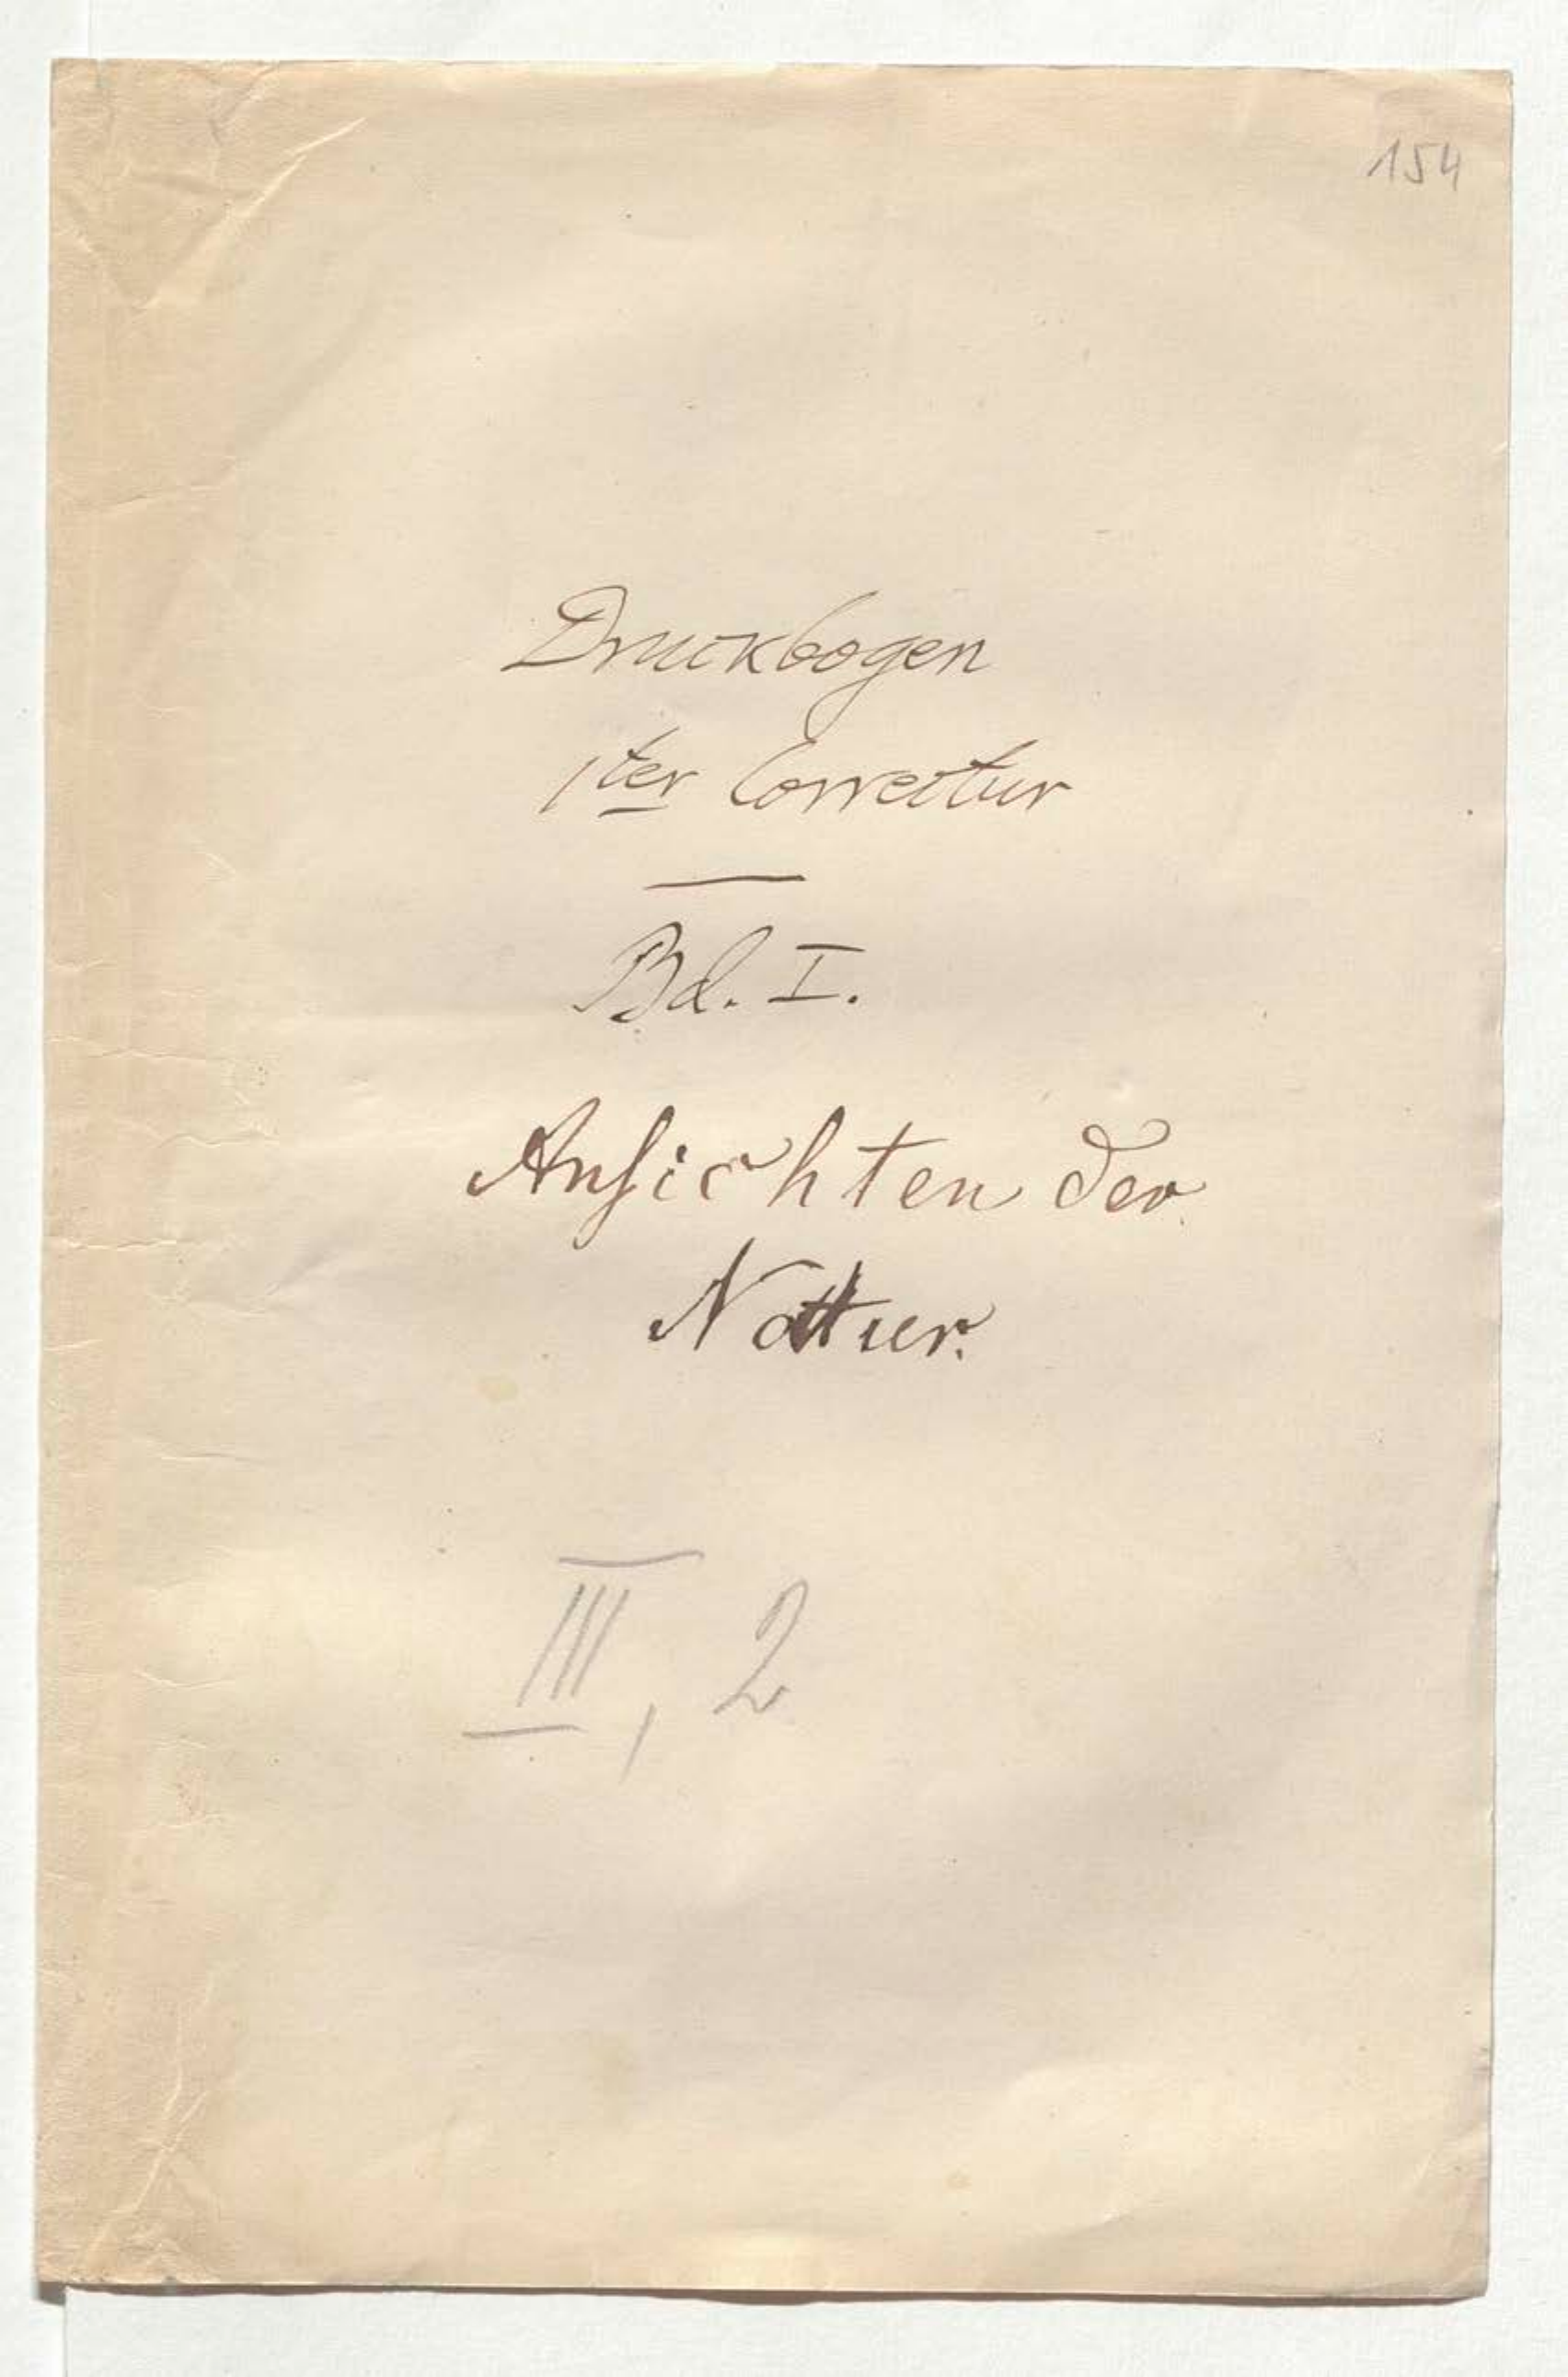 154
Druckbogen
1ter Correctur
Bd. I.
Ansichten der
Natur.
III, 2